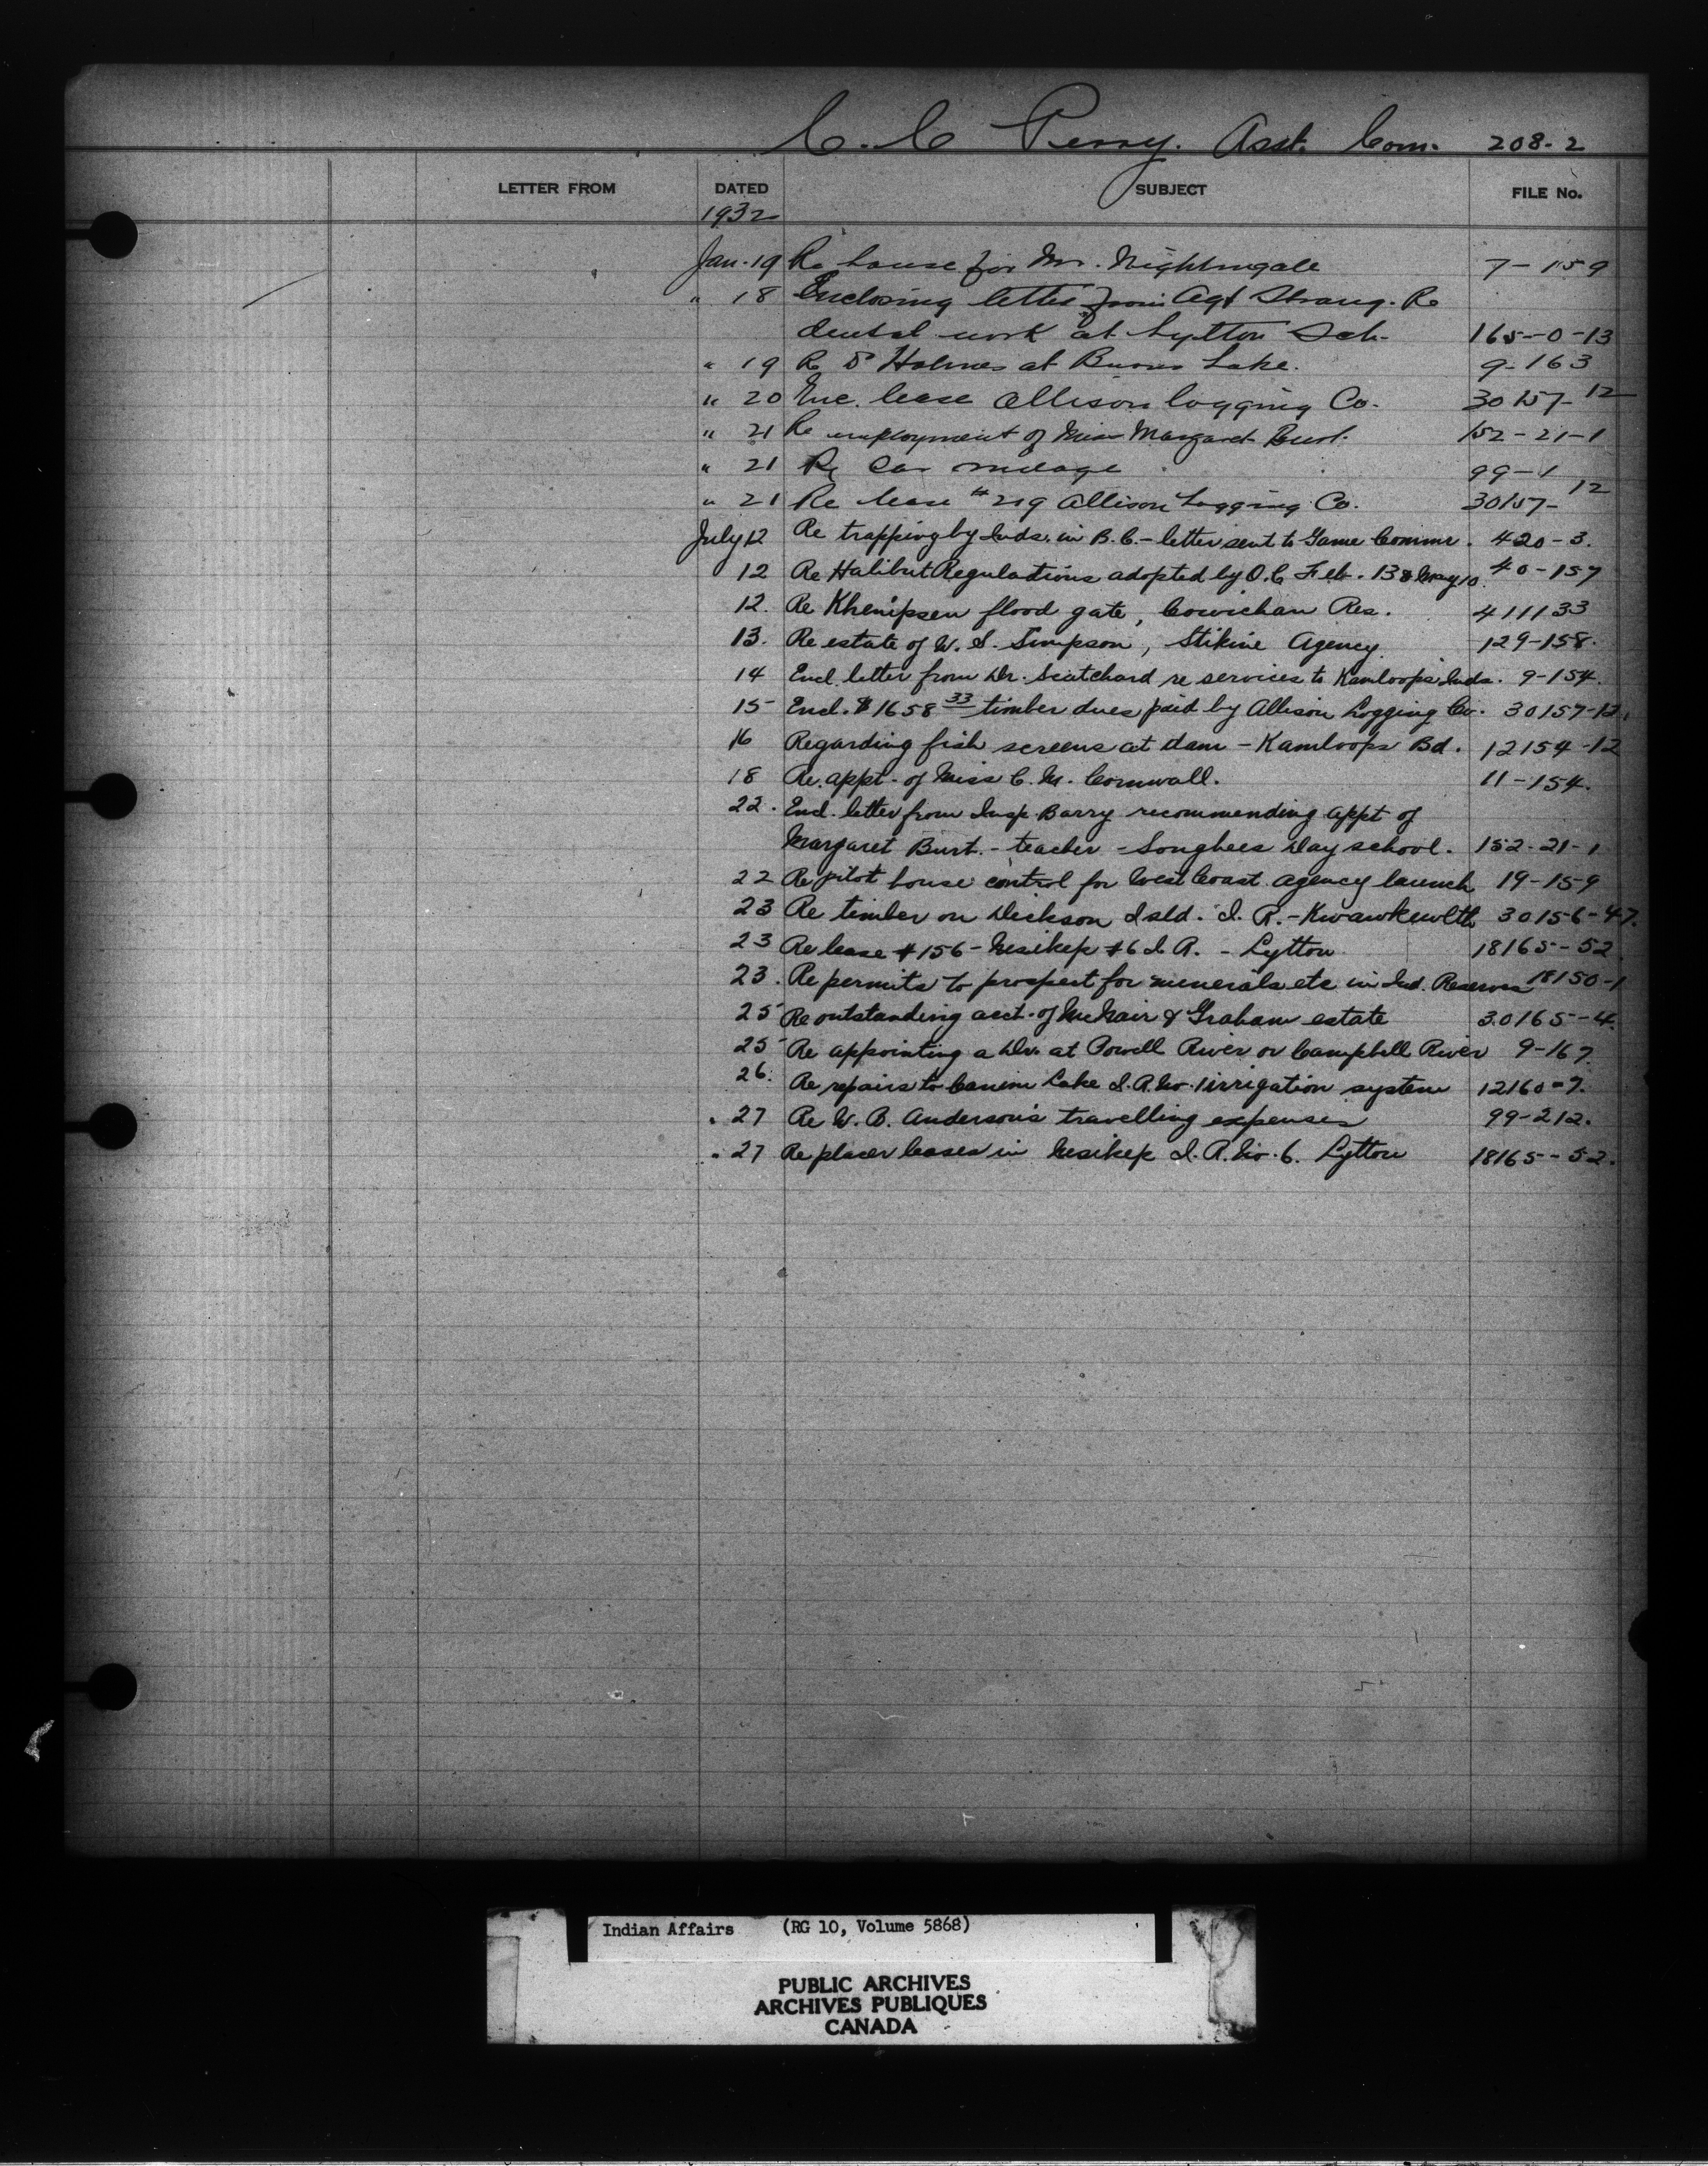 C. C. Perry. Asst. Com. 208-2
LETTER FROM DATED SUBJECT FILE No.
1932
Jan. 19 Re house for Mr. Nightingale 7-159
" 18 Enclosing letter from Agt Strang. Re
dental work at Lytton Sch. 165-0-13
" 19 Re Dr Holmes at Burns Lake. 9-163
" 20 Enc. lease Allison Logging Co. 30157-12
" 21 Re employment of Miss Margaret Burt. 152-21-1
" 21 Re Car mileage 99-1
" 21 Re lease #219 Allison Logging Co. 30157-12
July 12 Re trapping by Inds. in B.C. - letter sent to Game Commr. 420-3.
12 Re Halibut Regulations adopted by O.C Feb. 13 & May 10. 40-157
12. Re Khenipsen flood gate, Cowichan Res. 411133
13. Re estate of W. S. Simpson, Stikine Agency. 129-158.
14 Encl. letter from Dr. Scatchard re services to Kamloops Inds. 9-154.
15 Encl. $1658 33 timber dues paid by Allison Logging Co. 30157-12.
16 Regarding fish screens at dam - Kamloops Bd. 12154-12
18 Re. appt. of Miss C. M. Cornwall. 11-154.
22. Encl. letter from Insp. Barry recommending appt of
Margaret Burt. - teacher - Songhees Day school. 152-21-1
22 Re pilot house control for West Coast Agency launch 19-159
23 Re timber on Dickson Isld. I. R. - Kwawkewlth 30156-47.
23 Re lease #156 - Nesikep #6 I. R. - Lytton 18165-52.
23. Re permits to prospect for minerals etc in Ind. Reserves 18150-1
25 Re outstanding acct. of McNair & Graham estate 30165-4.
25 Re appointing a Dr. at Powell River or Campbell River 9-167.
26. Re repairs to Canim Lake I. R. No. 1 irrigation system 12160-7.
" 27 Re W. B. Anderson's travelling expenses 99-212.
" 27 Re placer leases in Nesikep I. R. No. 6. Lytton 18165-52.
Indian Affairs (RG 10, Volume 5868)
PUBLIC ARCHIVES
ARCHIVES PUBLIQUES
CANADA